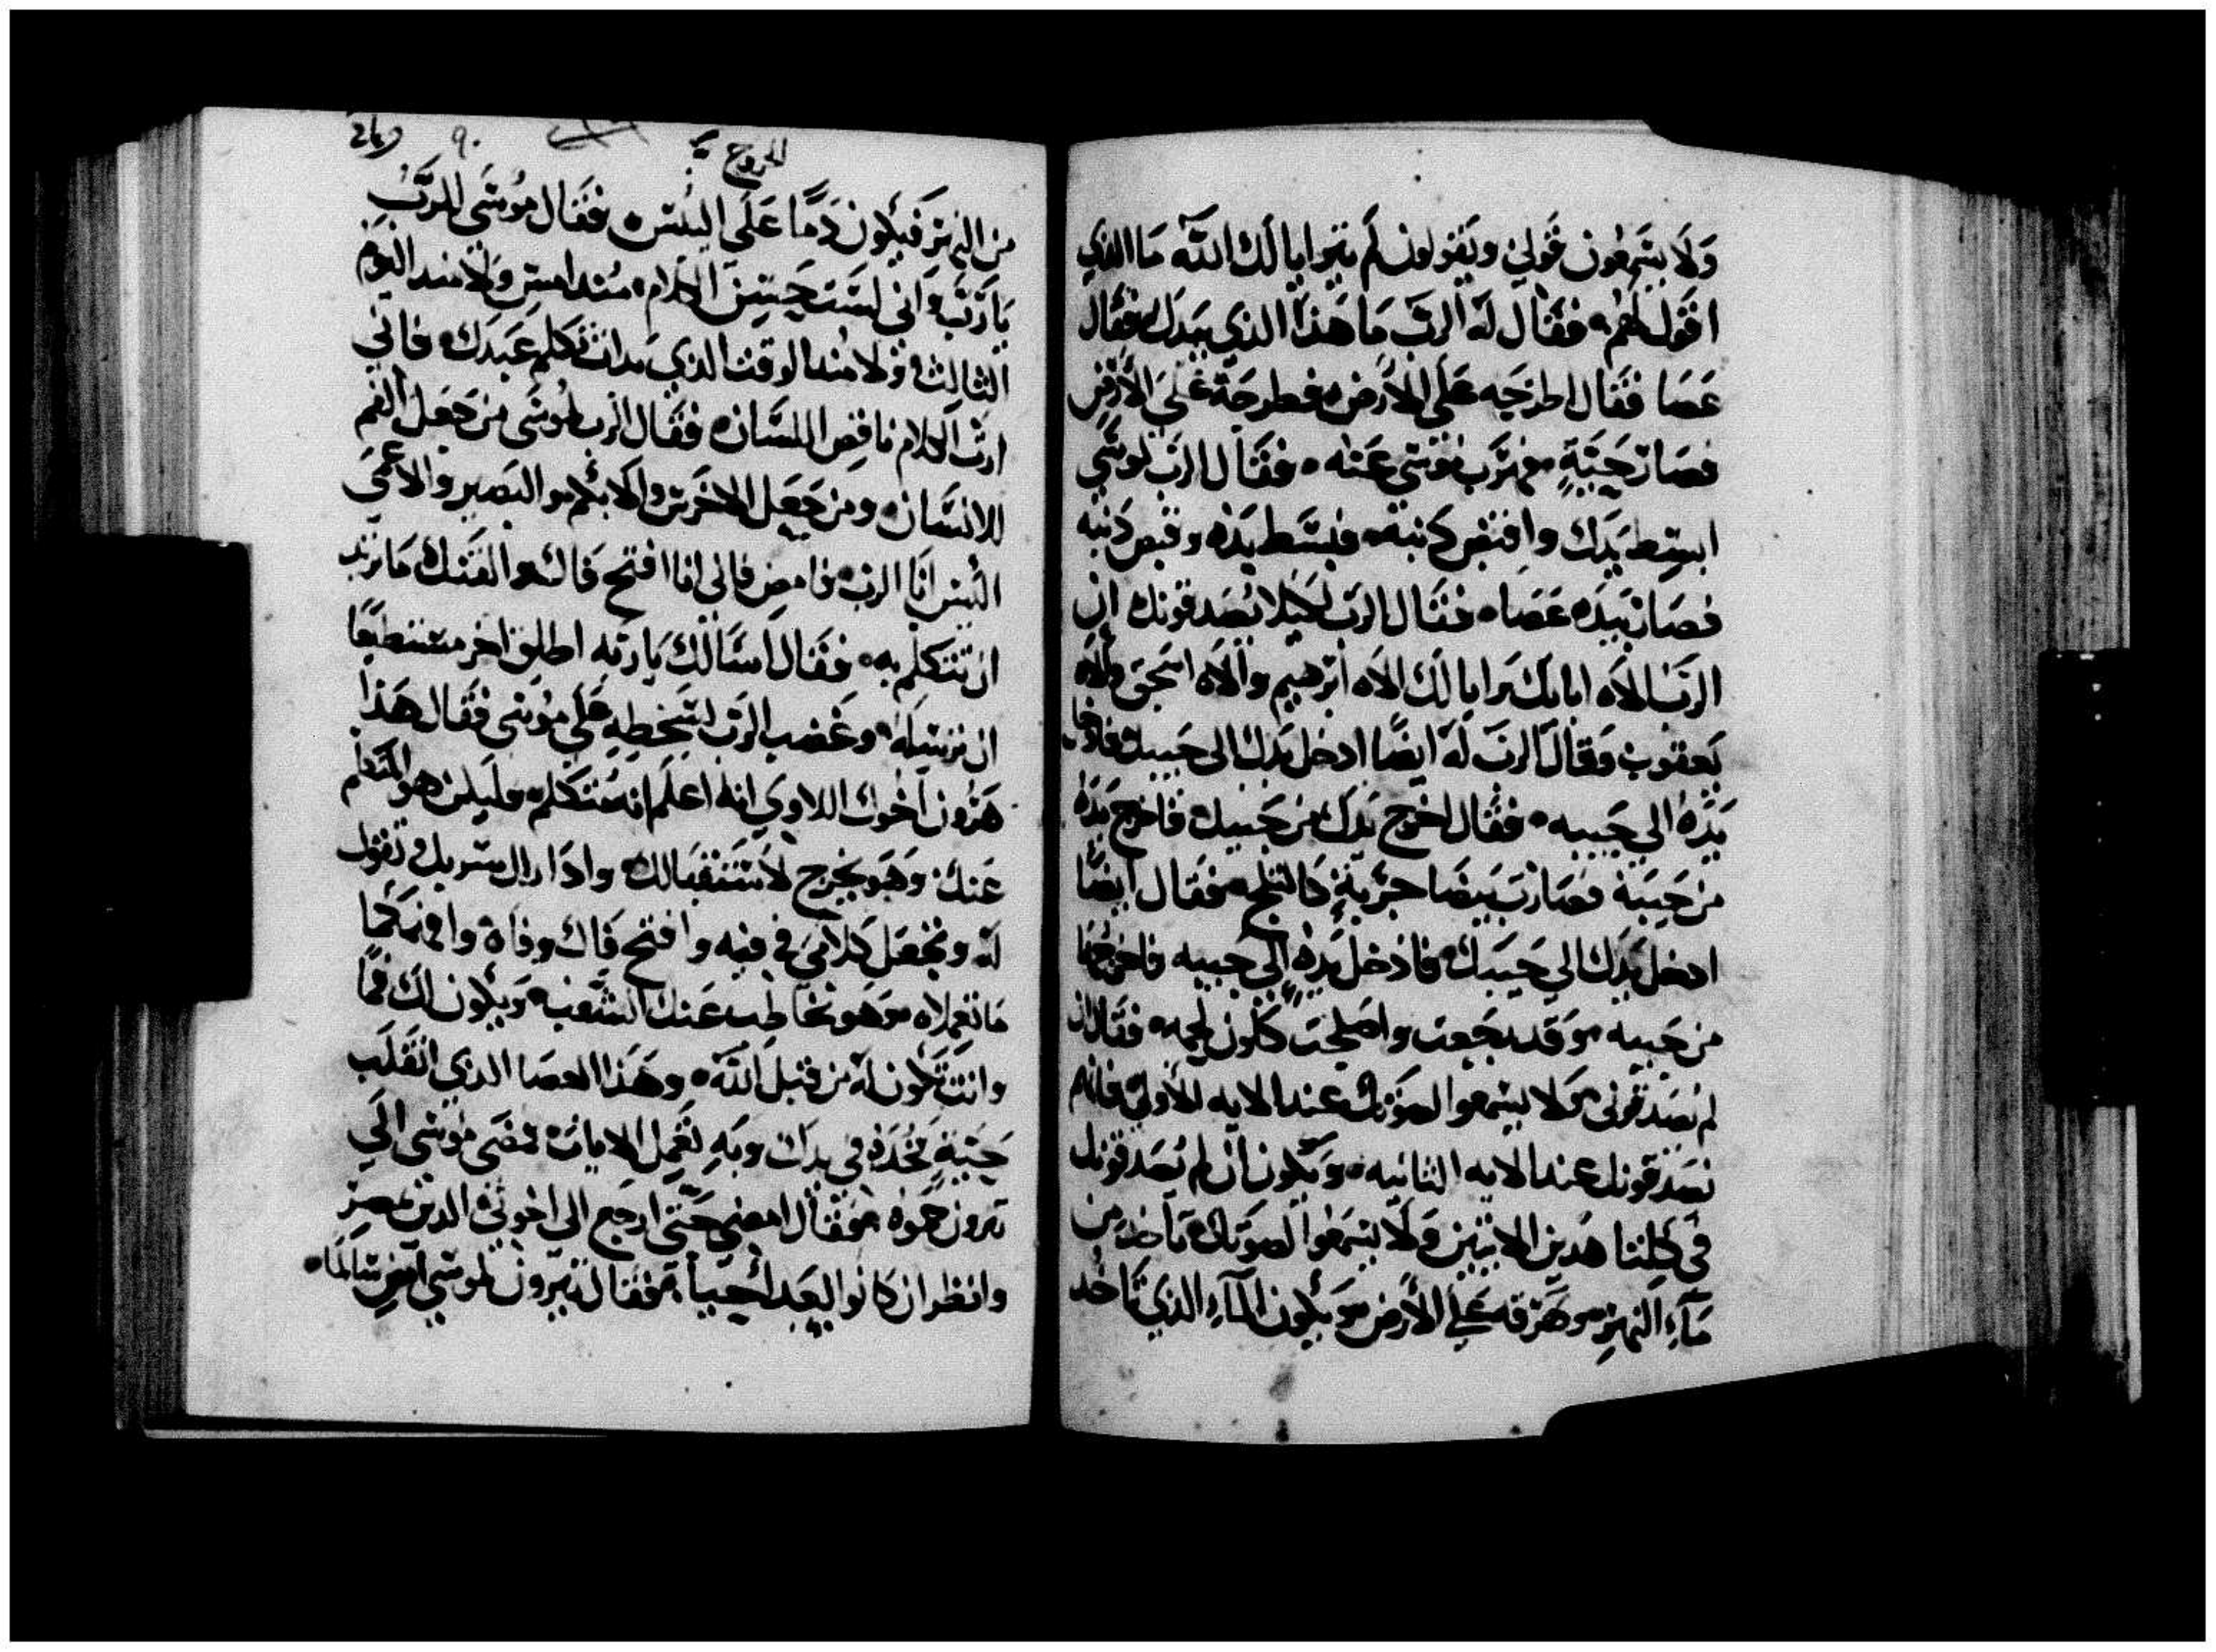 ولا يسمعون قولي ويقولون لم يترايا لك الله ما الذي
اقول لهم فقال له الرب ما هذا الذي بيدك فقال
عصا فقال اطرحه على الارض فطرحه على الارض
فصارت حية فهرب موسى عنه فقال الرب لموسى
ابسط يدك واقبض ذنبه فبسط يده وقبض ذنبه
فصارت بيده عصا فقال الرب لكيلا يصدقونك ان
الرب الاه ابايك ترايا لك الاه ابرهيم والاه اسحق والاه
يعقوب وقال الرب له ايضا ادخل يدك الى جيبك فادخل
يده الى جيبه فقال اخرج يدك من جيبك فاخرج يده
من جيبه فصارت بيضا كالثلج فقال ايضا
ادخل يدك الي جيبك فادخل يده الي جيبه فاخرجها
من جيبه وقد رجعت واصلحت كلون لحمه فقال ان
لم يصدقوني ولا يسمعوا لصوتك عند الايه الاولى فانهم
يصدقونك عند الايه الثانيه ويكون ان لم يصدقونك
في كلتا هدين الايتين ولا يسمعوا لصوتك تاخد من
مآء النهر وهرقه على الارض ويكون المآء الذي تاخد
الخروج
٩٠
من النهر فيكون دما على اليبس فقال موسى للرب
يا رب واني لست حسن الكلام مند امس ولا مند اليوم
الثالث ولا مند الوقت الذي بدات تكلم عبدك فاني
ارت الكلام ناقص اللسان فقال الرب لموسى من جعل الفم
للانسان ومن جعل الاخرس والابكم والبصير والاعمى
اليس انا الرب فامض فاني انا افتح فاك والقنك ما تريد
ان تتكلم به فقال اسالك يا ربه اطلق اخر مستطيعا
ان ترسله وغضب الرب لسخطه على موسى فقال هذا
هرون اخوك اللاوي انه اعلم انه متكلم وليكن هو المتكلم
عنك وهو يخرج لاستقبالك واذا راك تقول
له وتجعل كلامي في فيه وافتح فاك وفاه وافهمكما
ما تعملاه وهو يخاطب عنك الشعب ويكون لك فما
وانت تكون له من قبل الله وهذا العصا الدي انقلب
حية تخده في يدك وبه تعمل الايات فمضى موسى الى
يترون حموه فقال امضي حتى ارجع الى اخوتي الدين بمصر
وانظر ان كانوا ليعد احيا فقال يترون لموسى امض سالما